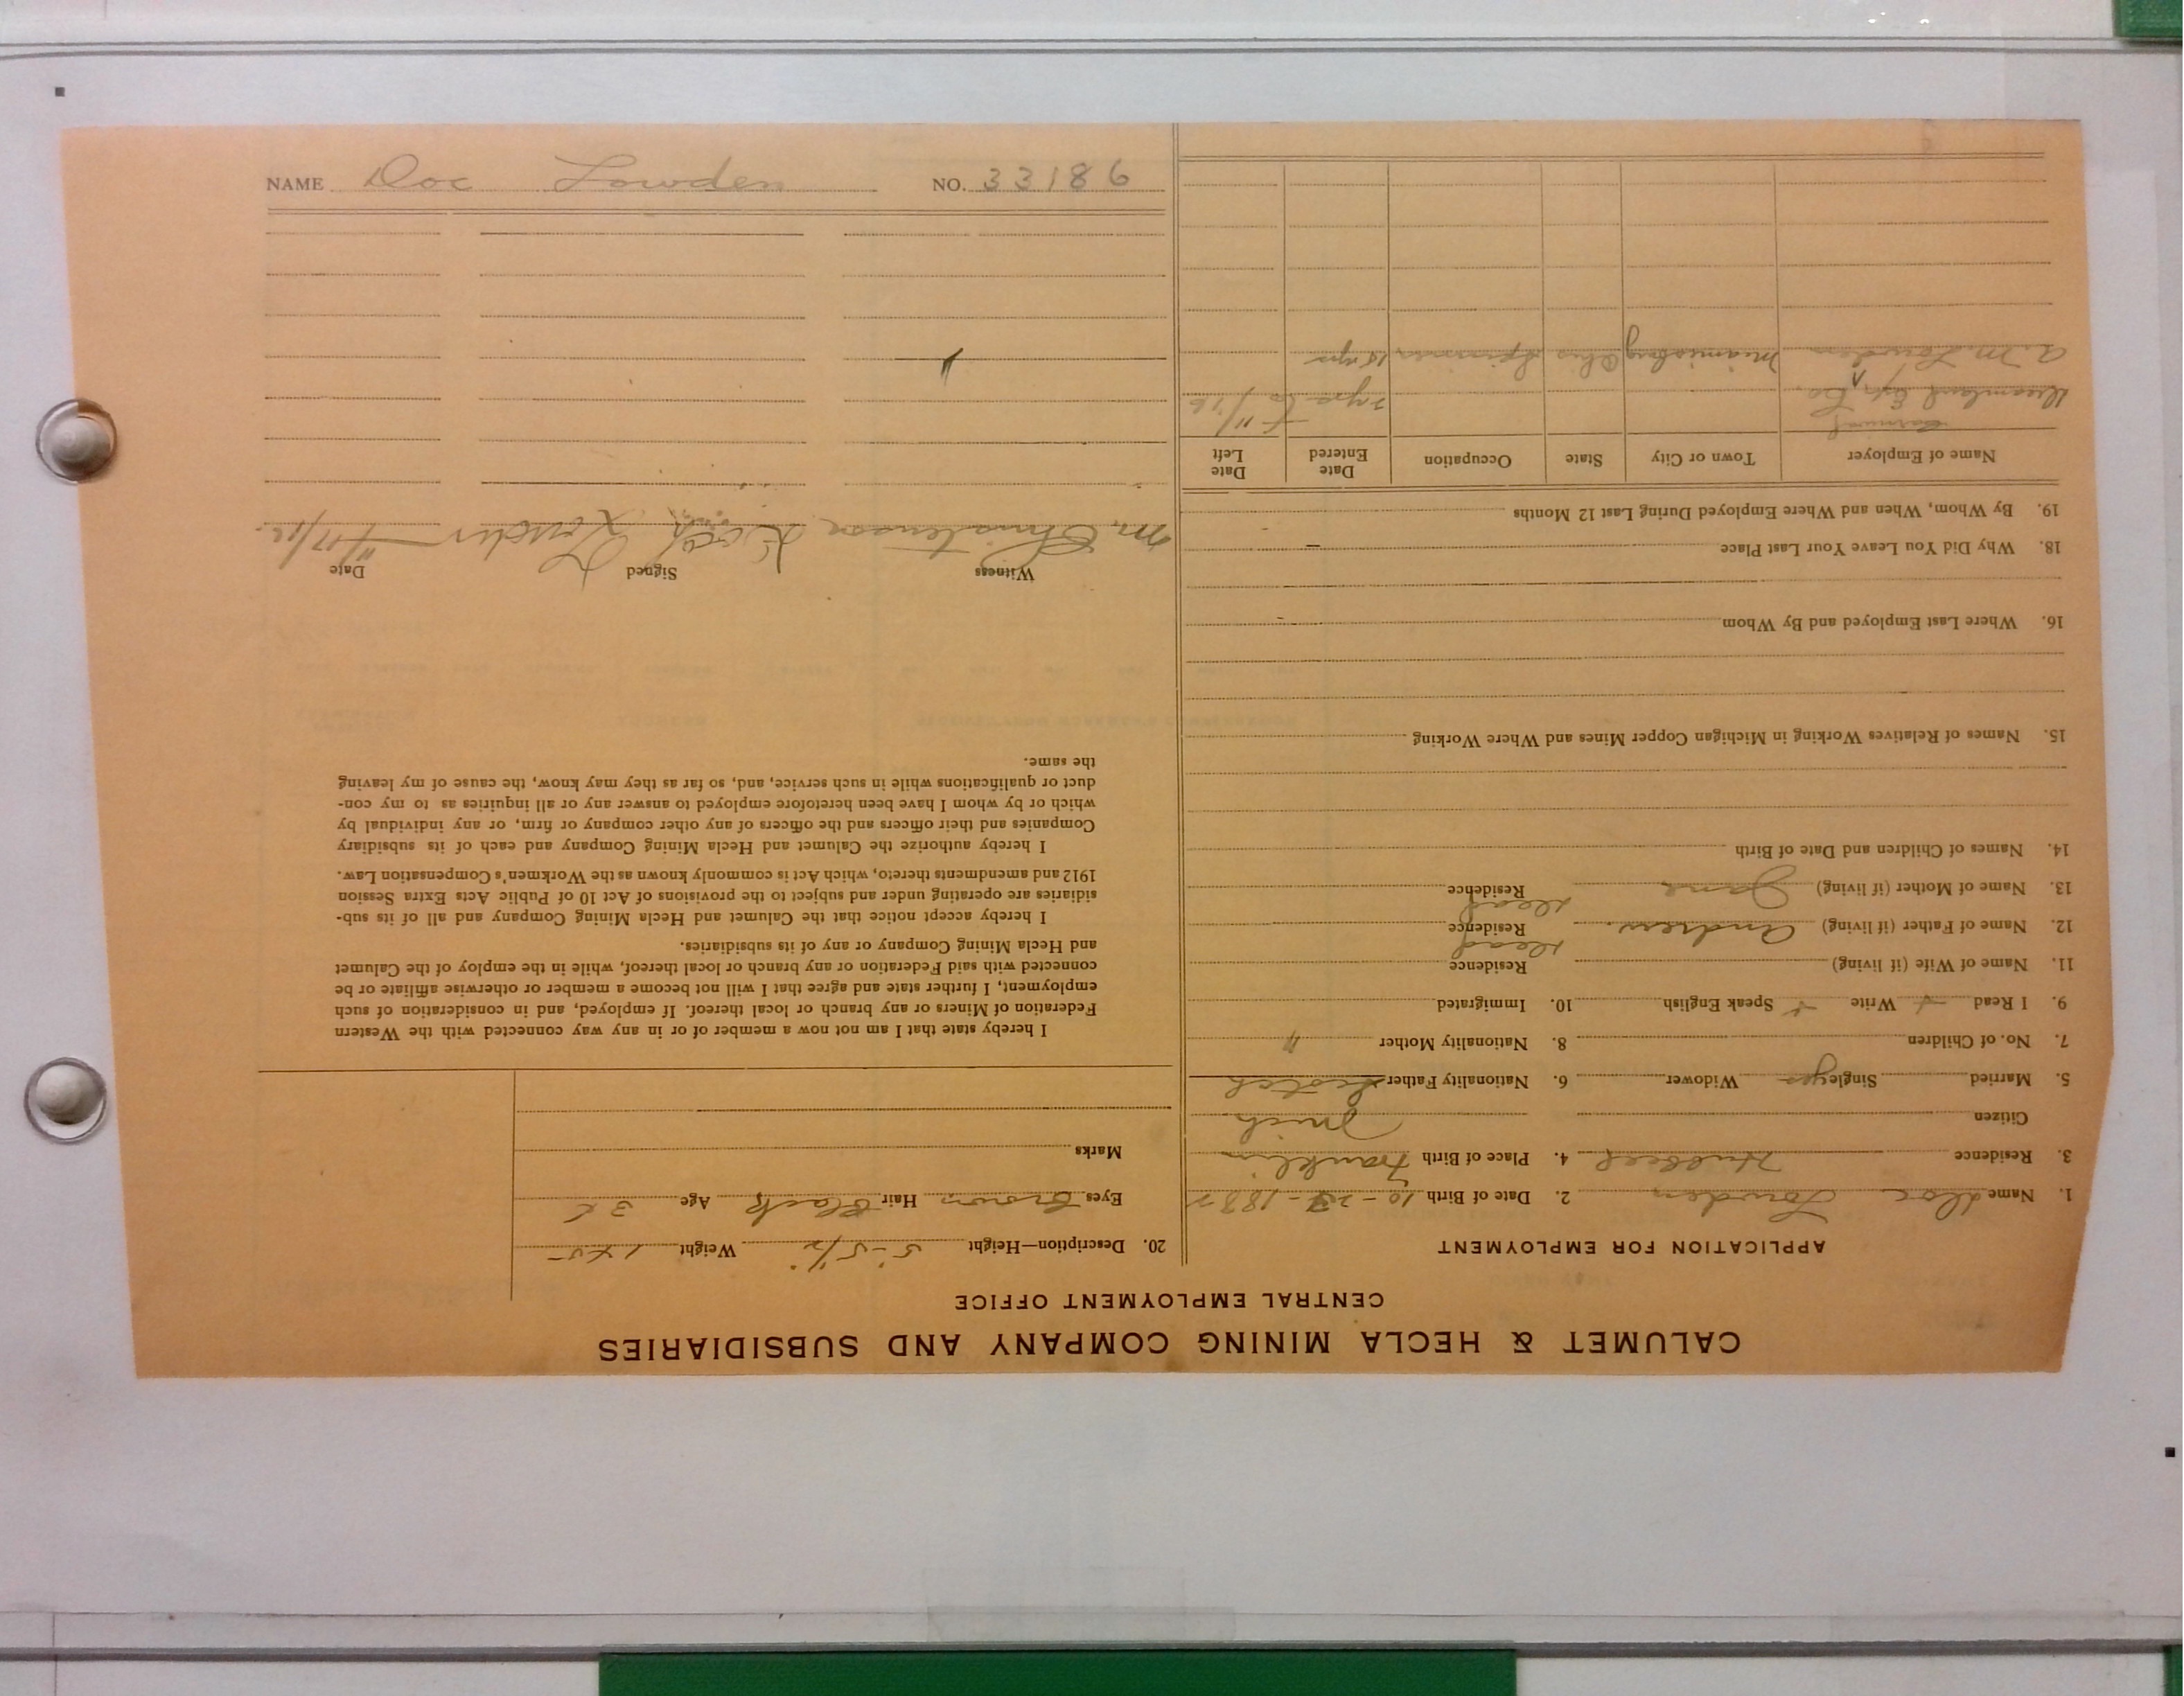 CALUMET & HECLA MINING COMPANY AND SUBSIDIARIES
CENTRAL EMPLOYMENT OFFICE
APPLICATION FOR EMPLOYMENT
1. Name Doc Lowden 2. Date of Birth 10-23-188
3. Residence Hubbell 4. Place of Birth Franklin
Citizen Mich
5. Married Single yes Widower 6. Nationality Father Scotch
7. No. of Children 8. Nationality Mother "
9. I Read Write Speak English 10. Immigrated
11. Name of Wife (if living) Residence
12. Name of Father (if living) Andrew Residence dead
13. Name of Mother (if living) Jane Residence dead
14. Names of Children and Date of Birth
15. Names of Relatives Working in Michigan Copper Mines and Where Working
16. Where Last Employed and By Whom
18. Why Did You Leave Your Last Place
19. By Whom, When and Where Employed During Last 12 Months
Name of Employer Town or City State Occupation Date Entered Date Left
Carnival
Dreamland Co.
A. M. Lowden Miamisburg Ohio 15 yrs
20. Description—Height 5'-5½" Weight
Eyes Brown Hair Black Age
Marks
I hereby state that I am not now a member of or in any way connected with the Western
Federation of Miners or any branch or local thereof. If employed, and in consideration of such
employment, I further state and agree that I will not become a member or otherwise affiliate or be
connected with said Federation or any branch or local thereof, while in the employ of the Calumet
and Hecla Mining Company or any of its subsidiaries.
I hereby accept notice that the Calumet and Hecla Mining Company and all of its sub-
sidiaries are operating under and subject to the provisions of Act 10 of Public Acts Extra Session
1912 and amendments thereto, which Act is commonly known as the Workmen's Compensation Law.
I hereby authorize the Calumet and Hecla Mining Company and each of its subsidiary
Companies and their officers and the officers of any other company or firm, or any individual by
which or by whom I have been heretofore employed to answer any or all inquiries as to my con-
duct or qualifications while in such service, and, so far as they may know, the cause of my leaving
the same.
Witness Signed Date
M. Christenson Lowden
NAME Doc Lowden NO. 33186